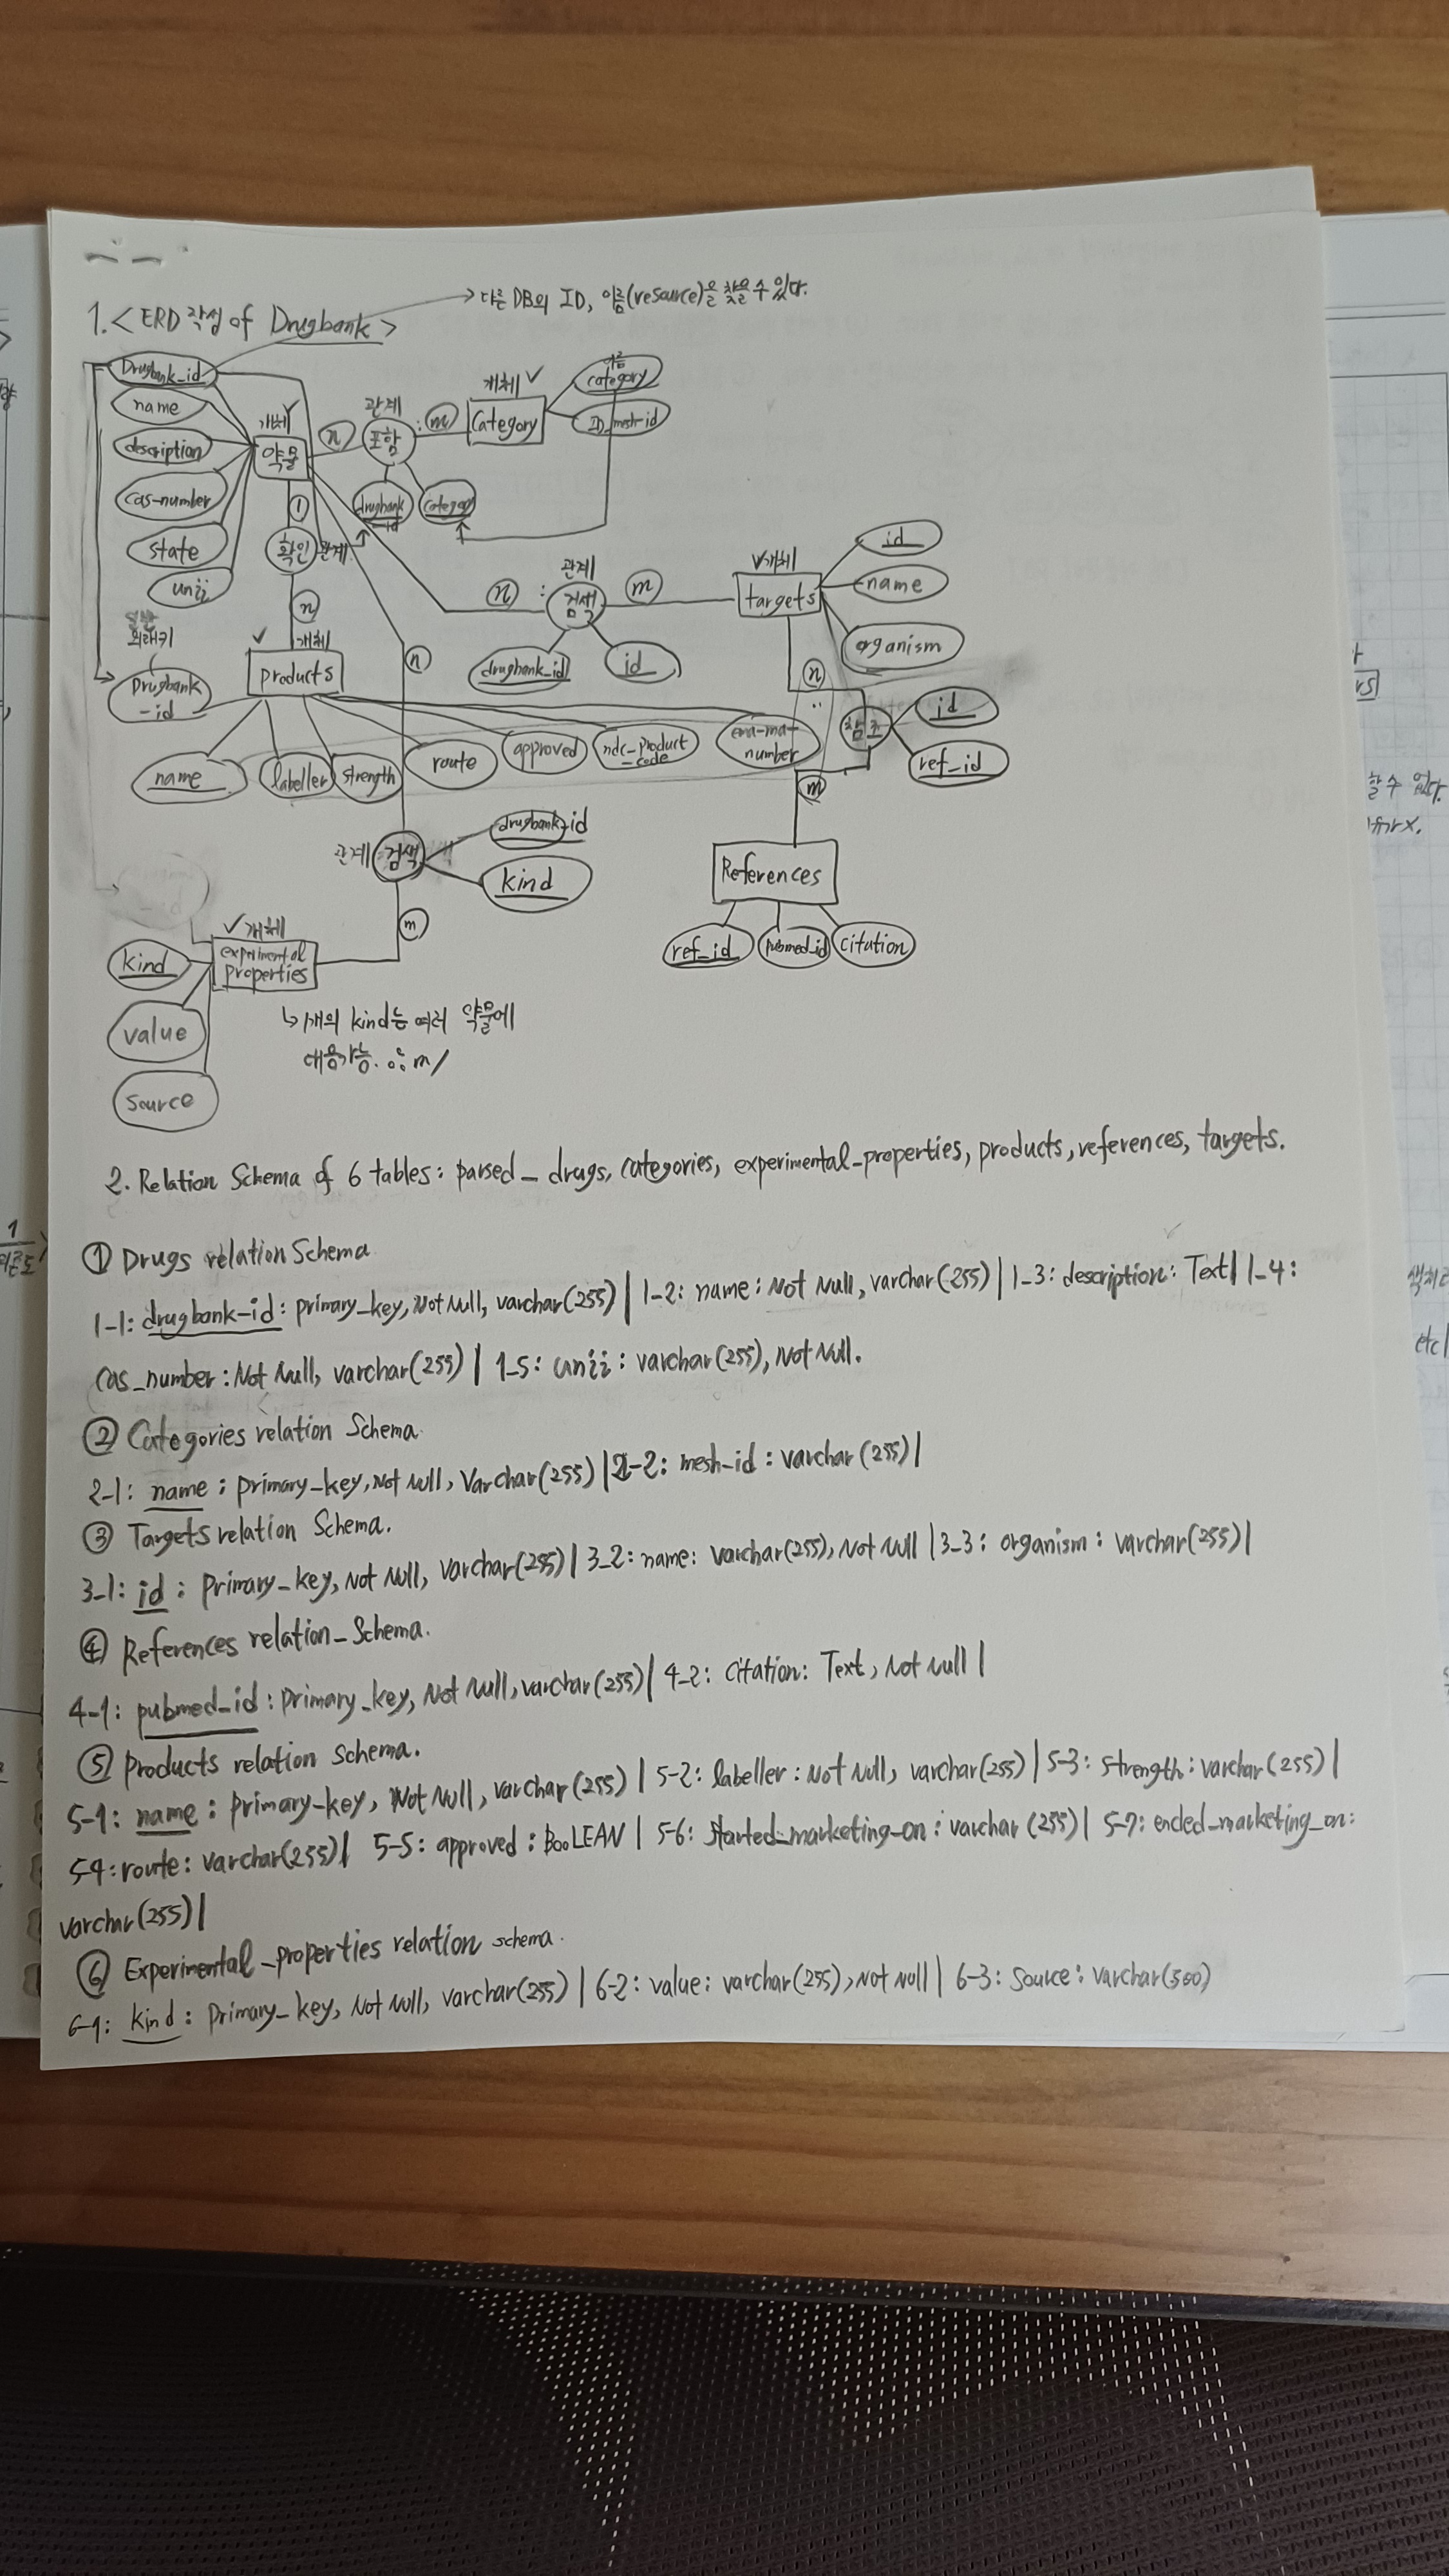 → 다른 DB의 ID, 이름(resource)을 찾을 수 있다.
1. <ERD 작성 of Drugbank>
Drugbank_id
name
description
cas-number
state
unii
개체
약물
n
관계
포함
: m
개체 ✓
Category
이름
category
ID_mesh-id
drugbank
-id
category
1
확인
관계
n
외래키
Drugbank
-id
✓
개체
products
name
labeller
strength
route
approved
ndc-product
-code
ema-ma-
number
n
관계
: 검색
m
drugbank_id
id
✓개체
targets
id
name
organism
n
:
참조
id
ref_id
m
References
ref_id
pubmed_id
citation
n
관계
검색
drugbank-id
kind
m
✓개체
experimental
properties
kind
value
source
↳ 1개의 kind는 여러 약물에
대응가능. ∴ m/
2. Relation Schema of 6 tables: parsed_drugs, categories, experimental_properties, products, references, targets.
① Drugs relation Schema
1-1: drugbank-id: primary_key, Not Null, varchar(255) | 1-2: name: Not Null, varchar(255) | 1-3: description: Text | 1-4:
cas_number: Not Null, varchar(255) | 1-5: unii: varchar(255), Not Null.
② Categories relation Schema
2-1: name: primary-key, Not Null, Varchar(255) | 2-2: mesh-id: varchar(255) |
③ Targets relation Schema.
3-1: id: primary-key, Not Null, varchar(255) | 3-2: name: varchar(255), Not Null | 3-3: organism: varchar(255) |
④ References relation_Schema.
4-1: pubmed_id: primary_key, Not Null, varchar(255) | 4-2: Citation: Text, Not Null |
⑤ Products relation Schema.
5-1: name: primary-key, Not Null, varchar(255) | 5-2: labeller: Not Null, varchar(255) | 5-3: strength: varchar(255) |
5-4: route: varchar(255) | 5-5: approved: BooLEAN | 5-6: started_marketing_on: varchar(255) | 5-7: ended_marketing_on:
varchar(255) |
⑥ Experimental_properties relation schema.
6-1: kind: primary_key, Not Null, varchar(255) | 6-2: value: varchar(255), Not Null | 6-3: source: varchar(500)
할 수 없다.
etc